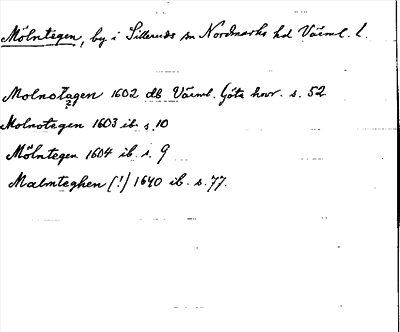 Mölntegen, by i Silleruds sn Nordmarks hd Värml. l.
Molnotagen 1602 db Värml. Göta hovr. s. 52
Molnotegen 1603 ib. s. 10
Mölntegen 1604 ib. s. 9
Malmteghen (!) 1640 ib. s. 77.